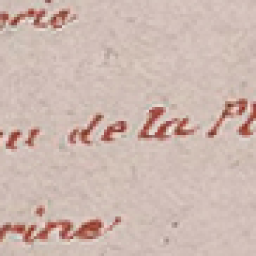 erie
au de la Pl
rine